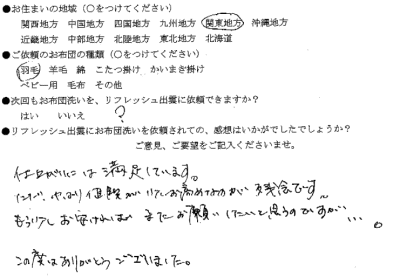 ●お住まいの地域（○をつけてください）
関西地方 中国地方 四国地方 九州地方 関東地方 沖縄地方
近畿地方 中部地方 北陸地方 東北地方 北海道
●ご依頼のお布団の種類（○をつけてください）
羽毛 羊毛 綿 こたつ掛け かいまき掛け
ベビー用 毛布 その他
●次回もお布団洗いを、リフレッシュ出雲に依頼できますか？
はい いいえ ?
●リフレッシュ出雲にお布団洗いを依頼されての、感想はいかがでしたでしょうか？
ご意見、ご要望をご記入くださいませ。
仕上がりには満足しています。
ただ、やはり値段が少しお高めなのが残念です～
もう少しお安ければまたお願いしたいと思うのですが…。
この度はありがとうございました。